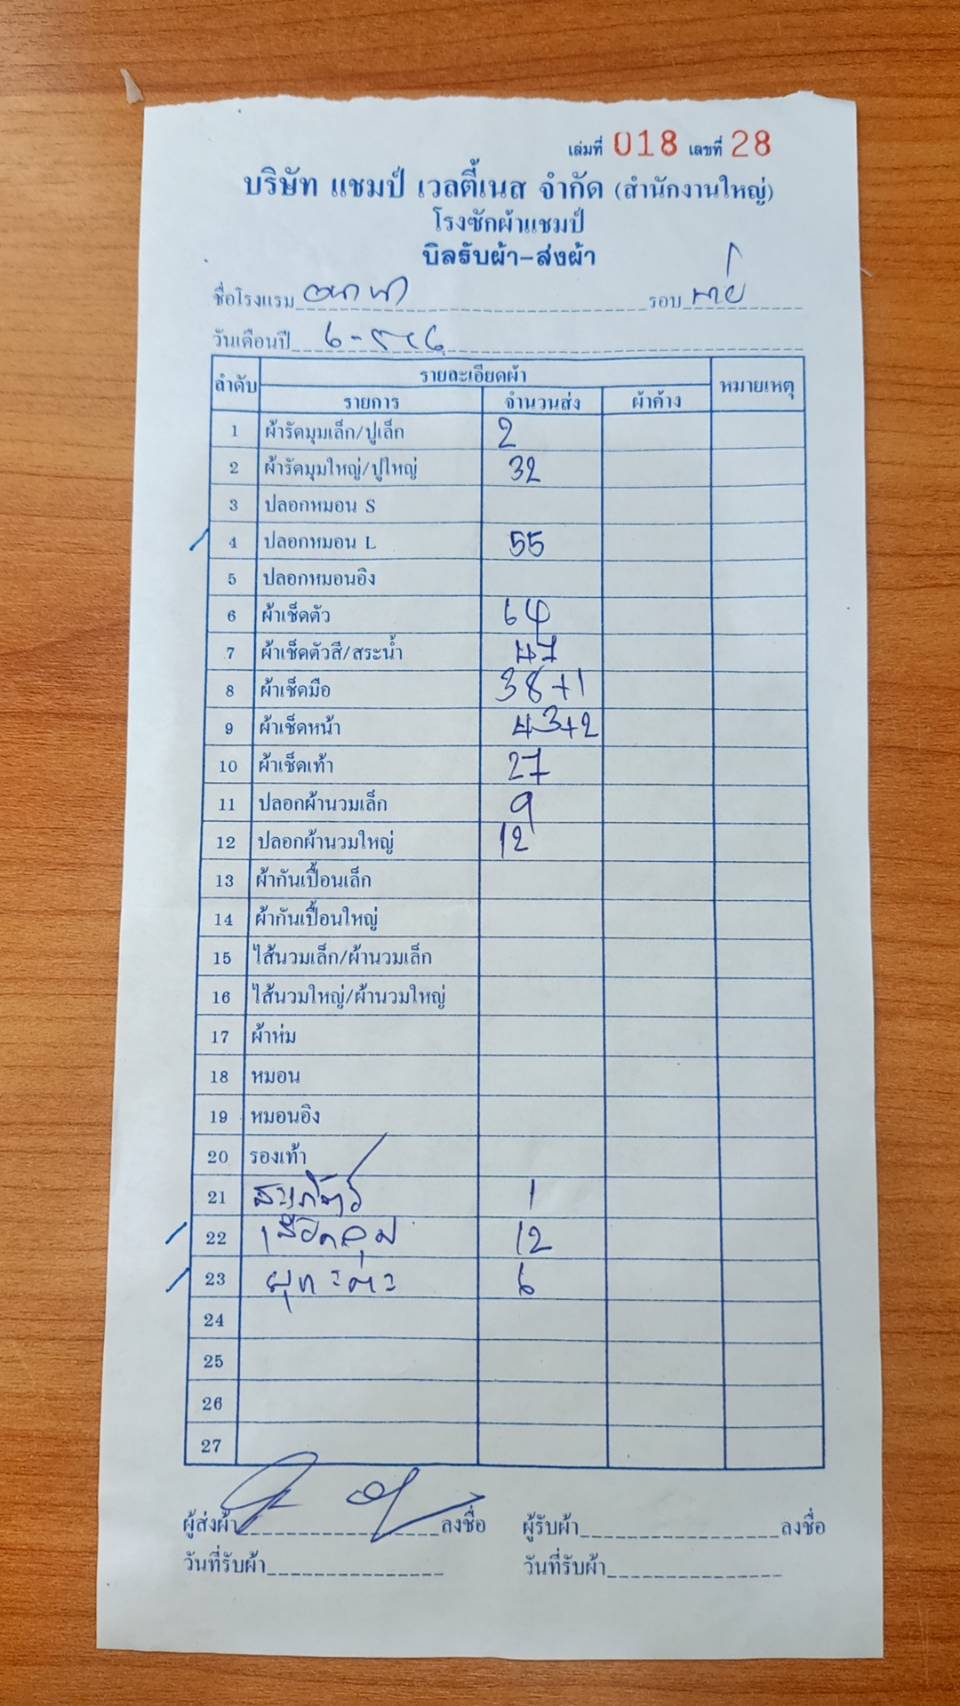 เล่มที่ 018 เลขที่ 28
บริษัท แชมป์ เวลตี้เนส จำกัด (สำนักงานใหญ่)
โรงซักผ้าแชมป์
บิลรับผ้า-ส่งผ้า
ชื่อโรงแรม รอบ
วันเดือนปี
ลำดับ รายละเอียดผ้า หมายเหตุ
รายการ จำนวนส่ง ผ้าค้าง
1 ผ้ารัดมุมเล็ก/ปูเล็ก 2
2 ผ้ารัดมุมใหญ่/ปูใหญ่ 32
3 ปลอกหมอน S
4 ปลอกหมอน L 55
5 ปลอกหมอนอิง
6 ผ้าเช็ดตัว 64
7 ผ้าเช็ดตัวสี/สระน้ำ 47
8 ผ้าเช็ดมือ 38+1
9 ผ้าเช็ดหน้า 43+2
10 ผ้าเช็ดเท้า 27
11 ปลอกผ้านวมเล็ก 9
12 ปลอกผ้านวมใหญ่ 12
13 ผ้ากันเปื้อนเล็ก
14 ผ้ากันเปื้อนใหญ่
15 ไส้นวมเล็ก/ผ้านวมเล็ก
16 ไส้นวมใหญ่/ผ้านวมใหญ่
17 ผ้าห่ม
18 หมอน
19 หมอนอิง
20 รองเท้า
21 1
22 เสื้อคลุม 12
23 6
24
25
26
27
ผู้ส่งผ้า ลงชื่อ ผู้รับผ้า ลงชื่อ
วันที่รับผ้า วันที่รับผ้า